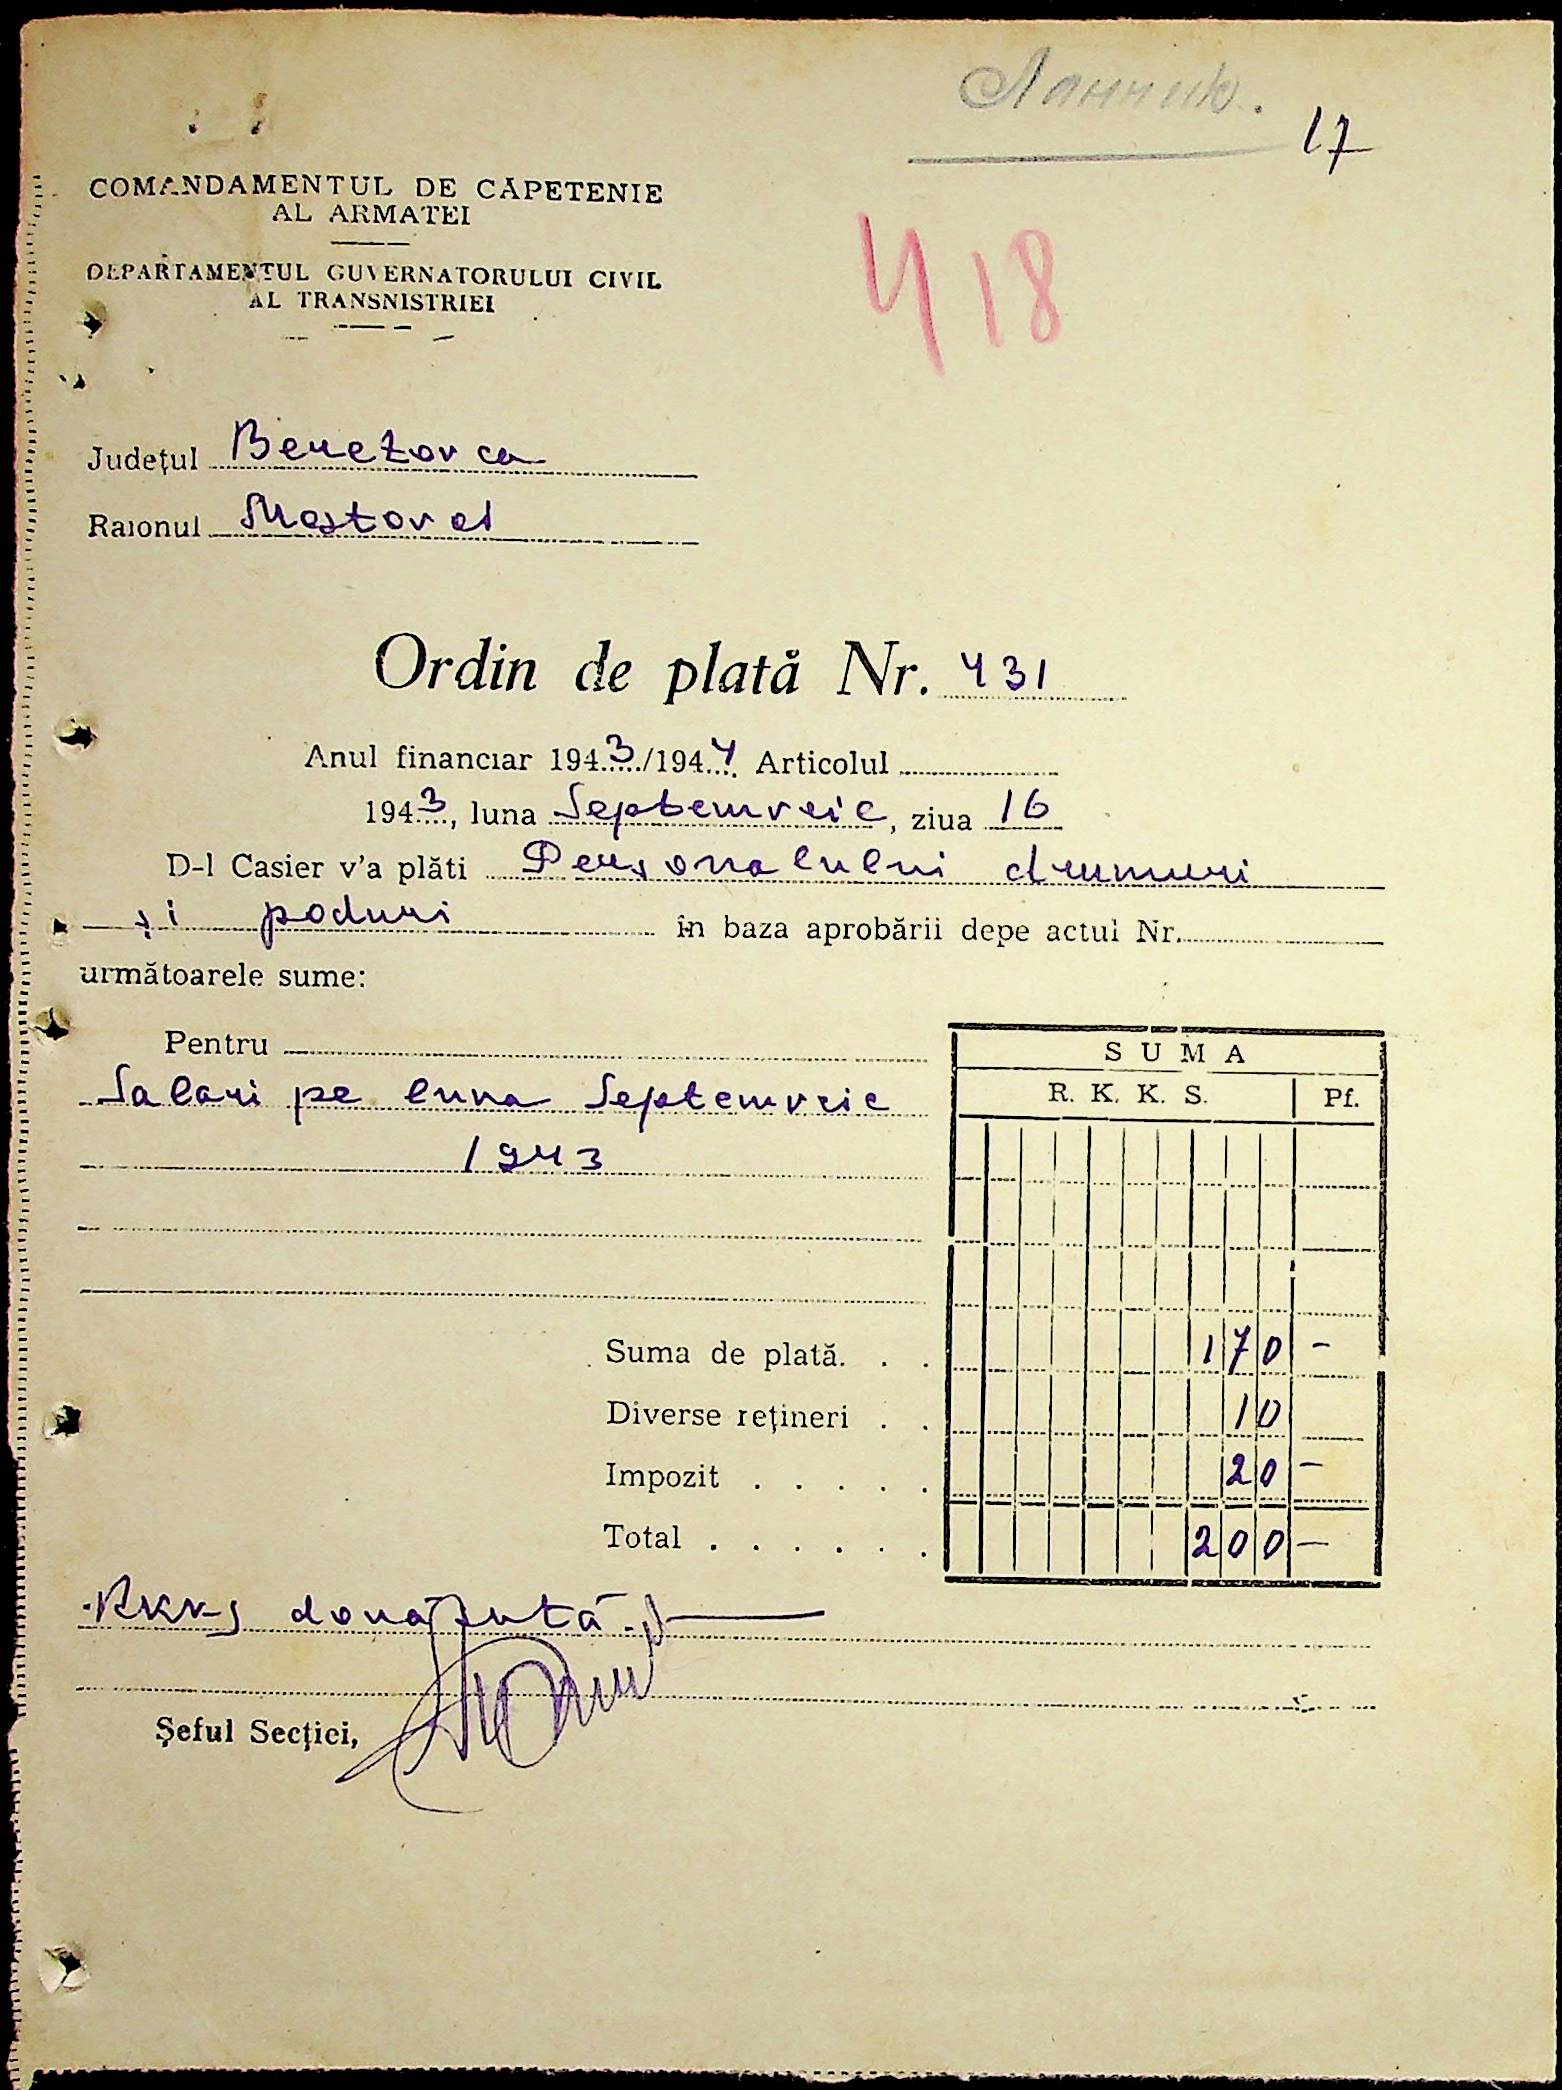 Ланник.
17
COMANDAMENTUL DE CĂPETENIE
AL ARMATEI
DEPARTAMENTUL GUVERNATORULUI CIVIL
AL TRANSNISTRIEI
418
Județul Berezovca
Raionul Mostovoi
Ordin de plată Nr. 431
Anul financiar 1943/1944 Articolul
1943, luna Septemvrie, ziua 16
D-l Casier v'a plăti Personalului drumuri
și poduri în baza aprobării depe actul Nr.
următoarele sume:
Pentru
SUMA
Salarii pe luna Septemvrie
R. K. K. S. Pf.
1943
Suma de plată. . . 170 -
Diverse rețineri . . 10
Impozit . . . . . 20 -
Total . . . . . . 200 -
două sută.
Șeful Secției,